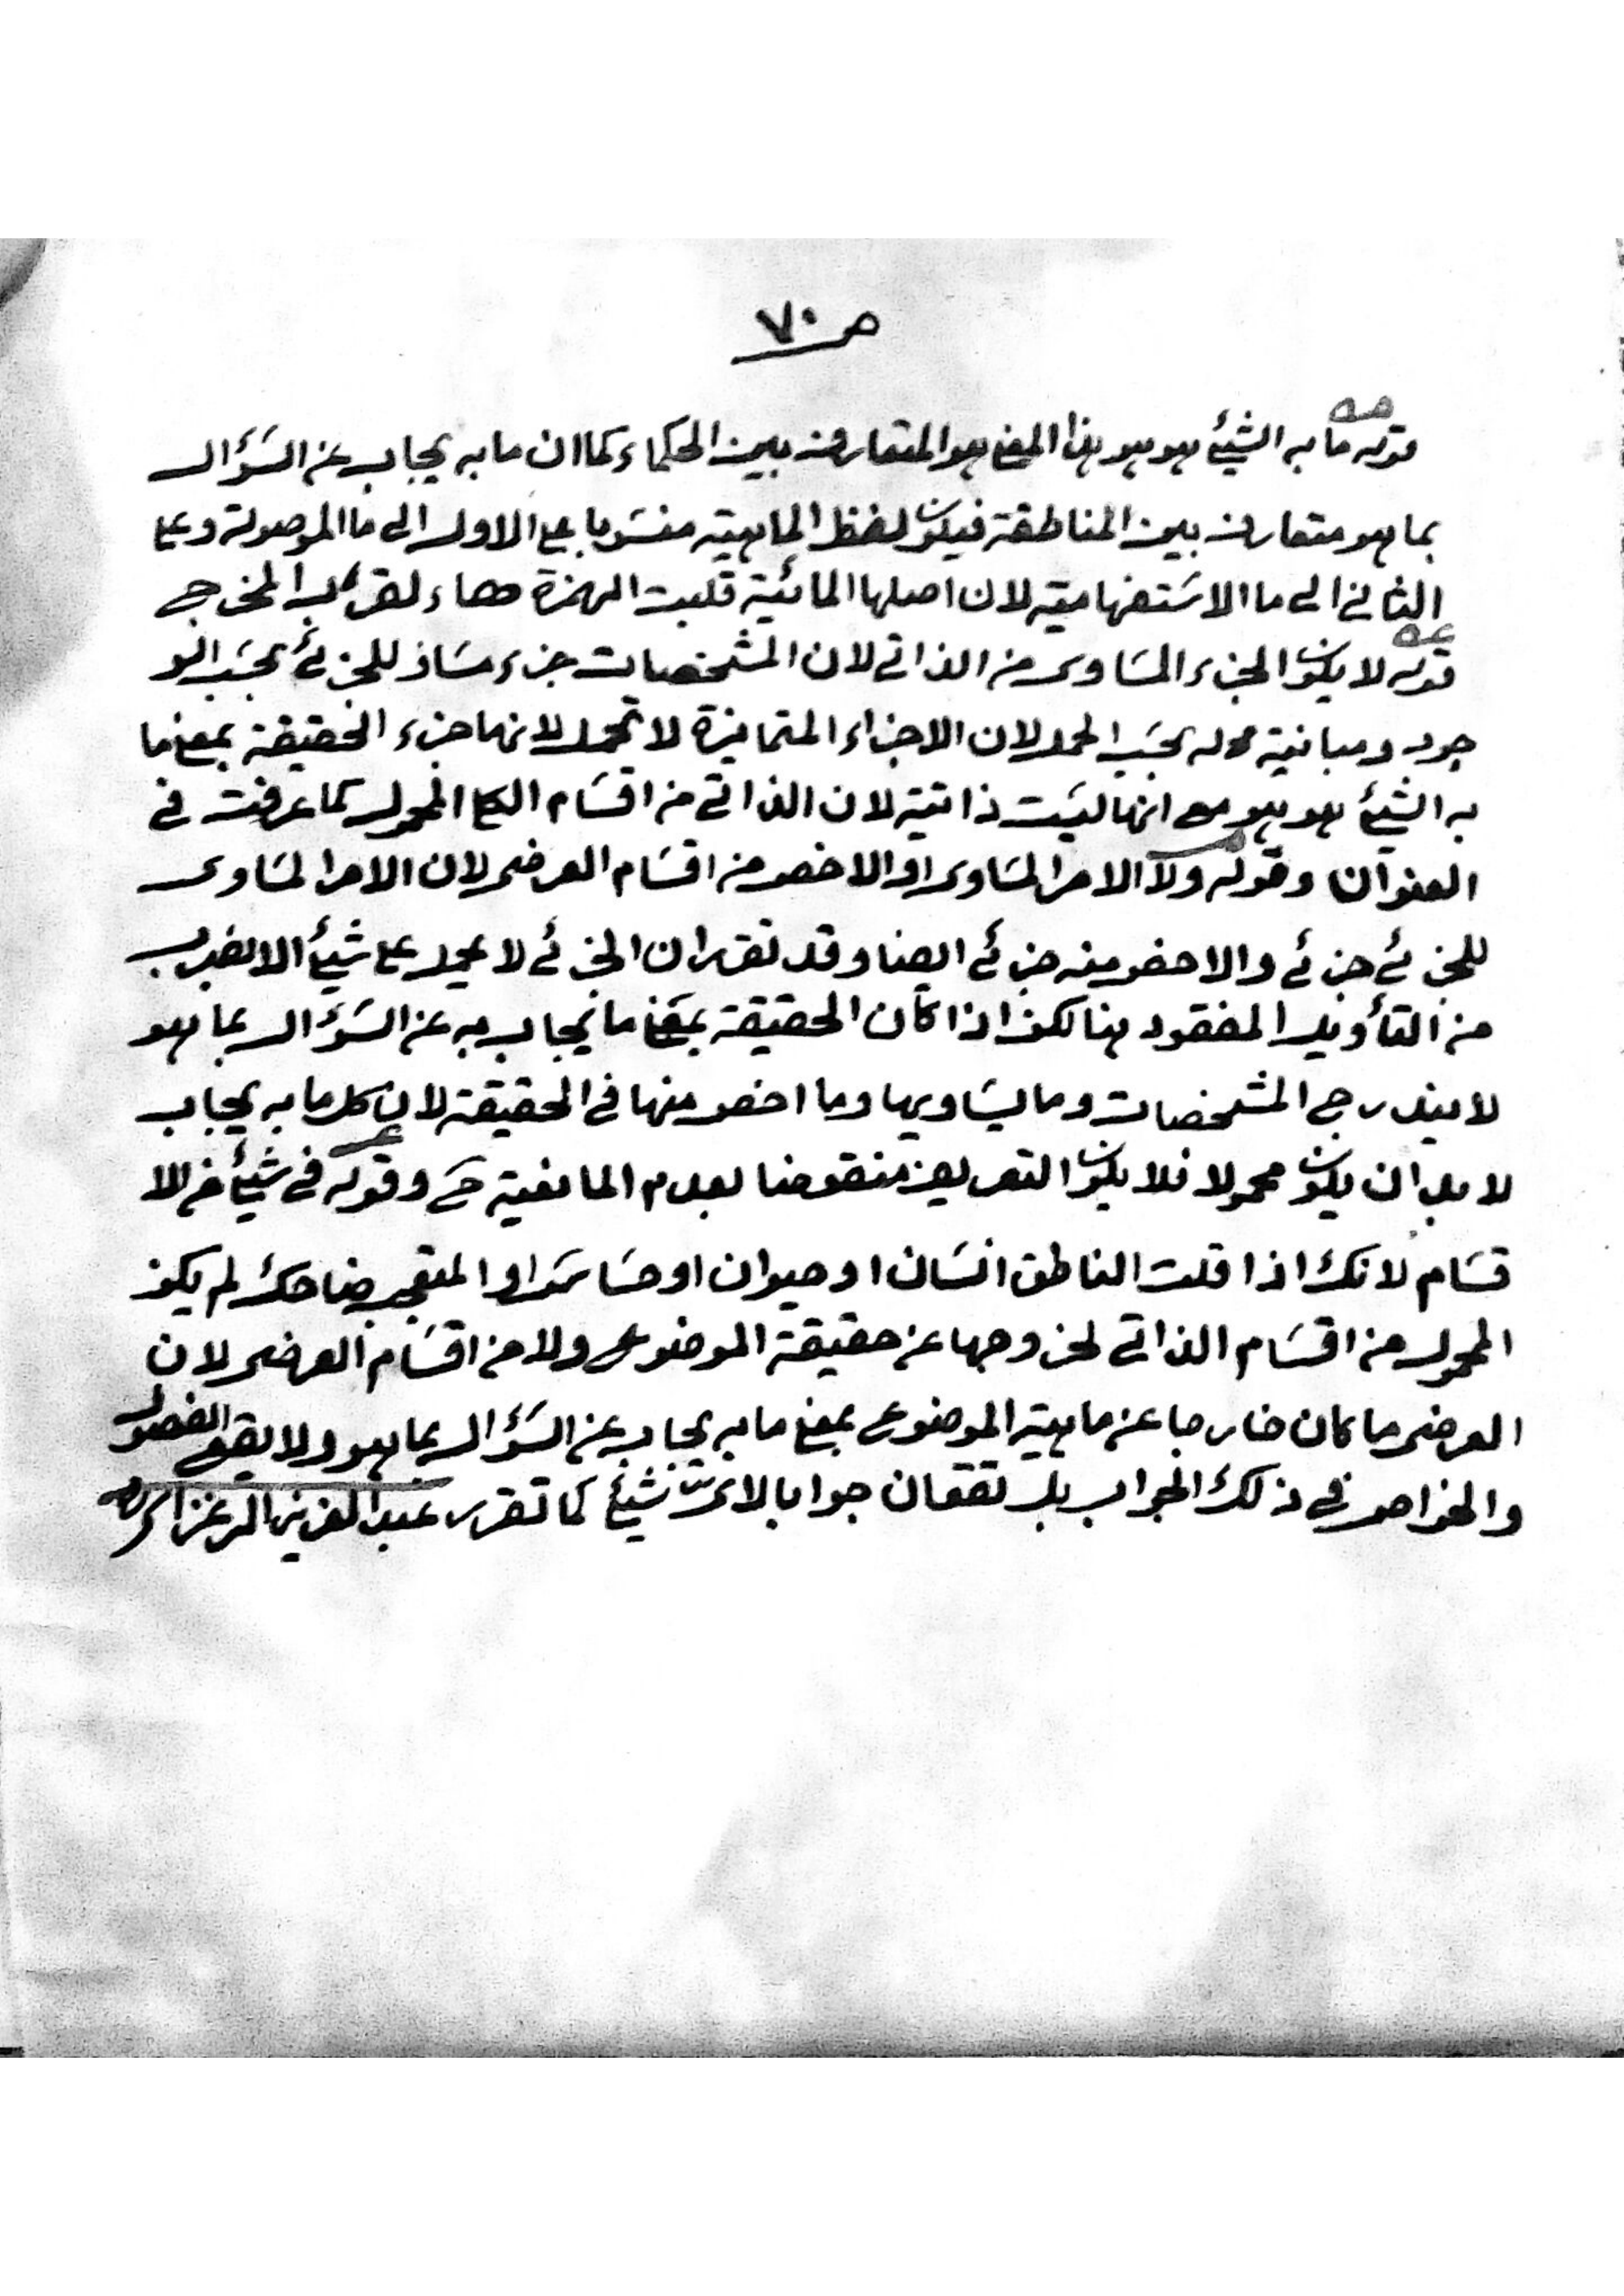 ص ٧٠
قوله ما به الشيئ هو هو بهذا المعنى هو المتعارف بين الحكماء كما ان ما به يجاب عن السؤال
بما هو متعارف بين المناطقة فيكون لفظ الماهية منسوبا على الاول الى ما الموصولة وعلى
الثاني الى ما الاستفهامية لان اصلها المائية قلبت الهمزة هاء لقرب المخرج
قوله لا يكون الجزء المساوى من الذاتى لان المشخصات جزء مساو للجزئى بحسب الو
جود ومباينة له بحسب الحمل لان الاجزاء المتمايزة لا تحمل لانها جزء الحقيقة بمعنى ما
به الشيئ هو هو مع انها ليست ذاتية لان الذاتى من اقسام الكلى المحمول كما عرفت فى
العنوان وقوله ولا الامر المساوى او الاخص من اقسام العرضى لان الامر المساوى
للجزئى جزئى والاخص منه جزئى ايضا وقد تقرر ان الجزئى لا يحمل على شيئ الا بضرب
من التأويل المفقود هنا لكن اذا كان الحقيقة بمعنى ما يجاب به عن السؤال بما هو
لا يندرج المشخصات وما يساويها وما اخص منها فى الحقيقة لان كل ما به يجاب
لا بد ان يكون محمولا فلا يكون التعريف منقوضا بعدم المانعية ح وقوله فى شيئ من الا
قسام لانك اذا قلت الناطق انسان او حيوان او حساس مثلا او المتعجب ضاحك لم يكن
المحمول من اقسام الذاتى لخروجها عن حقيقة الموضوع ولا من اقسام العرضى لان
العرضى ما كان خارجا عن ماهية الموضوع بمعنى ما به يجاب عن السؤال بما هو ولا يقع الفصول
والخواص فى ذلك الجواب بل تقعان جوابا لاىّ شيئ كما تقرر عبد العزيز